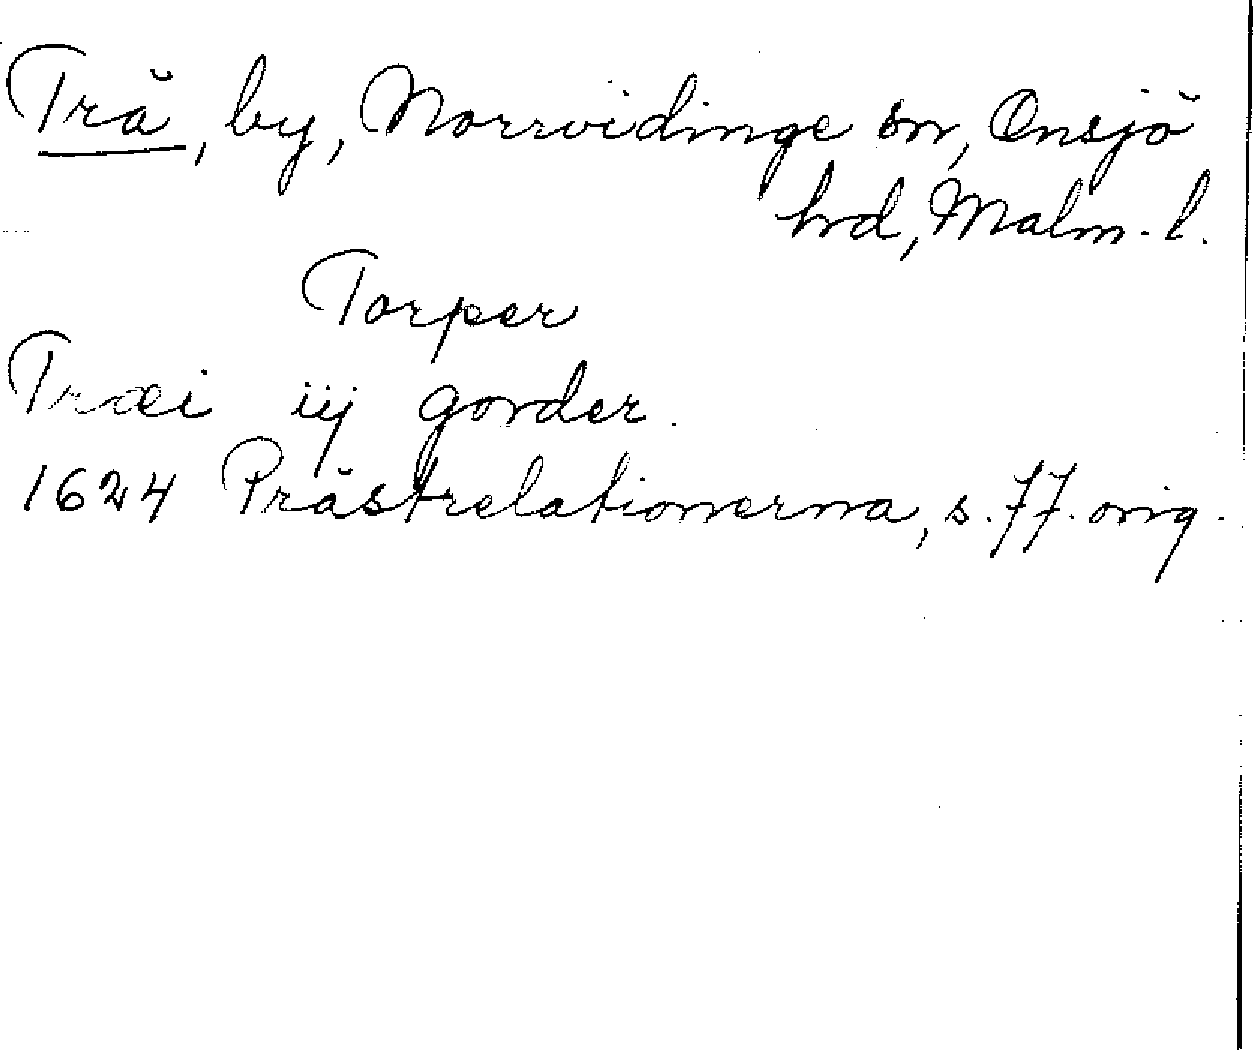 Trä, by, Norrvidinge sn, Onsjö
hrd, Malm. l.
Torper
Træi iij gorder.
1624 Prästrelationerna, s. 77. orig.